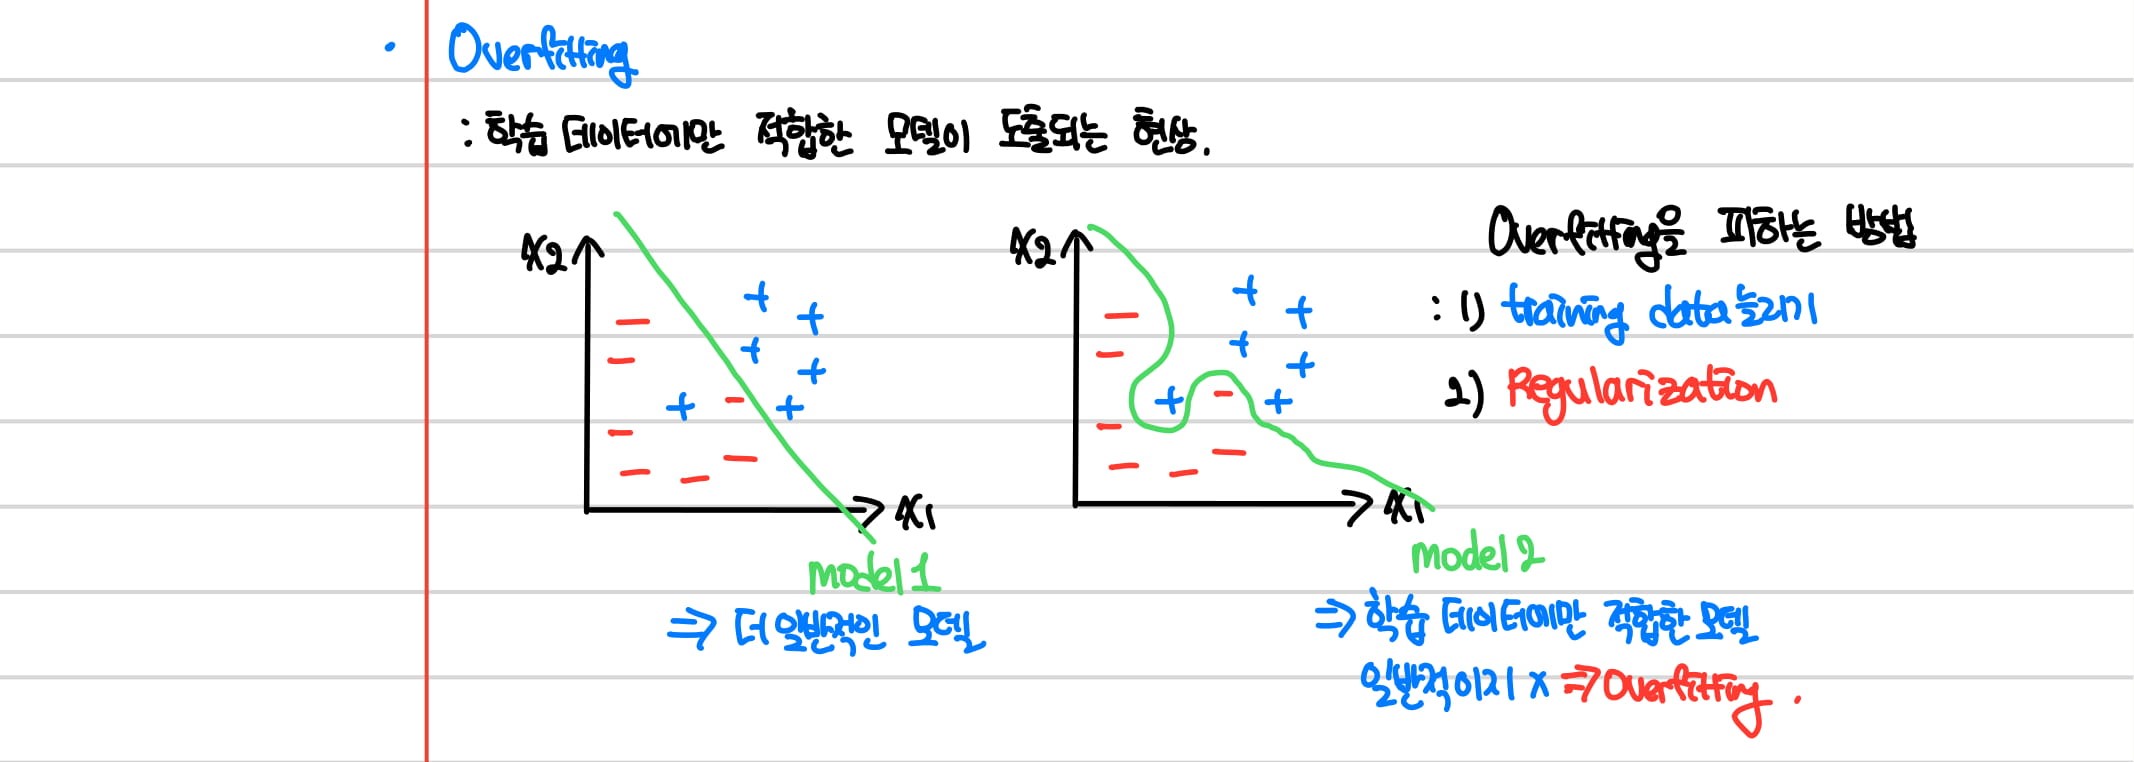 · Overfitting
: 학습 데이터에만 적합한 모델이 도출되는 현상.
x2
x1
model 1
⇒ 더 일반적인 모델
x2
x1
model 2
⇒ 학습 데이터에만 적합한 모델
일반적이지 x ⇒ Overfitting.
Overfitting을 피하는 방법
: 1) training data 늘리기
2) Regularization